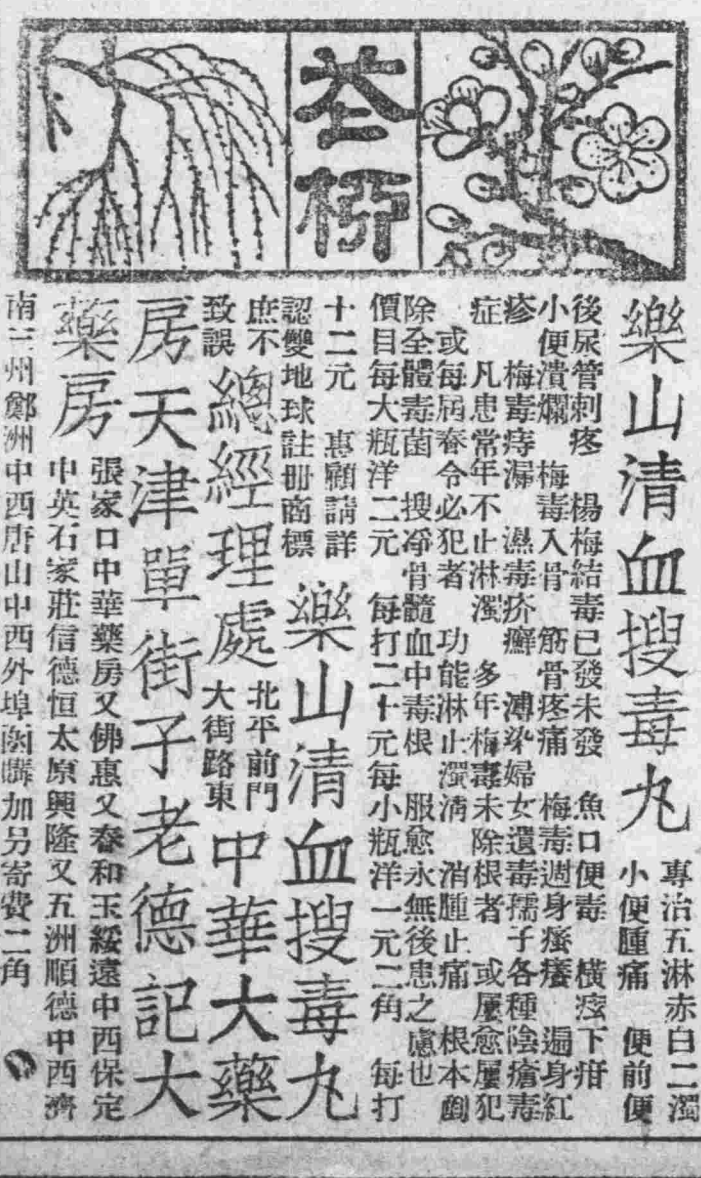 花柳
樂山清血搜毒丸
專治五淋赤白二濁
小便腫痛 便前便
後尿管刺疼 楊梅結毒已發未發 魚口便毒 橫痃下疳
小便潰爛 梅毒入骨 筋骨疼痛 梅毒週身瘙癢 遍身紅
疹 梅毒痔漏 濕毒疥癬 溥染婦女遺毒孺子各種陰瘡毒
症 凡患常年不止淋濁 多年梅毒未除根者 或屢愈屢犯
或每屆春令必犯者 功能淋止濁清 消腫止痛 根本剷
除全體毒菌 搜凈骨髓血中毒根 服愈永無後患之慮也
價目每大瓶洋二元 每打二十元每小瓶洋一元二角 每打
十二元 惠顧請詳
認雙地球註册商標
樂山清血搜毒丸
庶不
致誤
總經理處
北平前門
大街路東
中華大藥
房天津單街子老德記大
藥房
張家口中華藥房又佛惠又春和玉綏遠中西保定
中英石家莊信德恒太原興隆又五洲順德中西濟
南三州鄭洲中西唐山中西外埠函購加另寄費二角